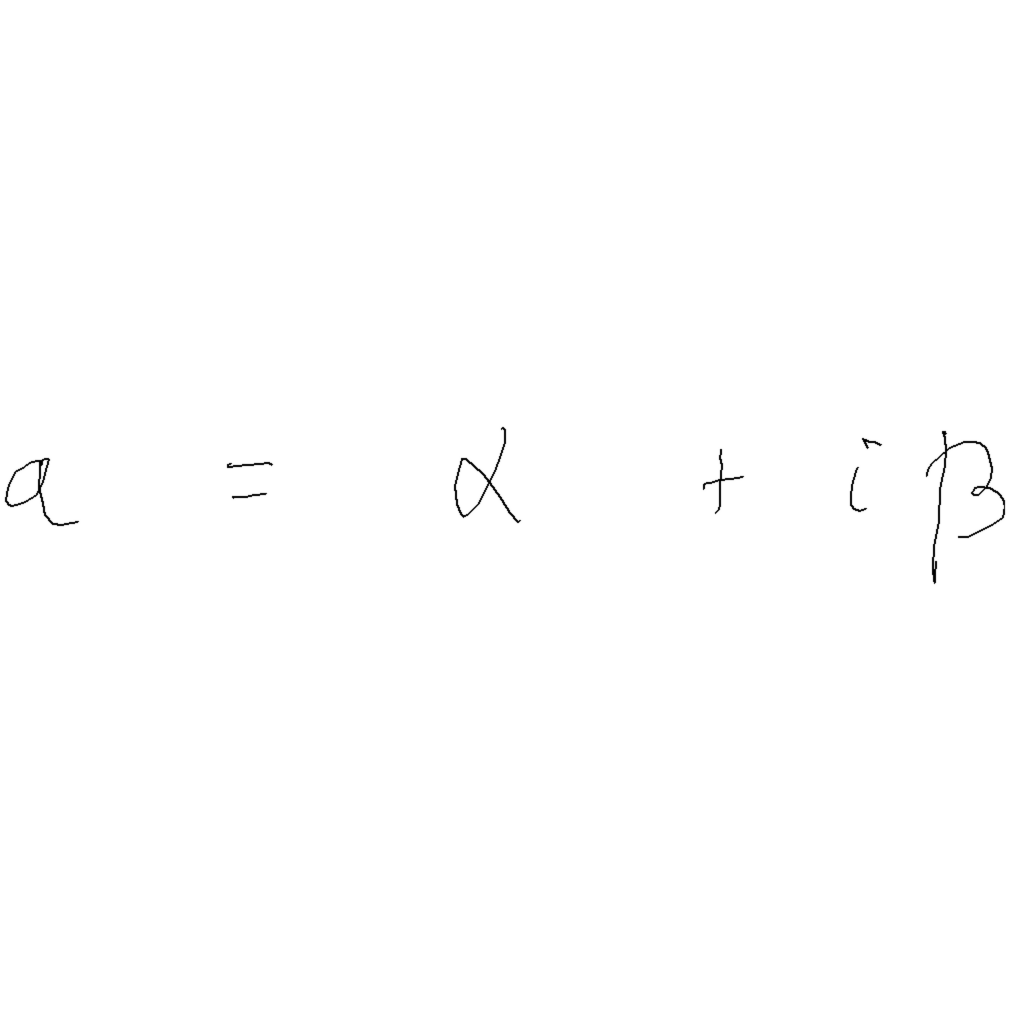 a = α + iβ